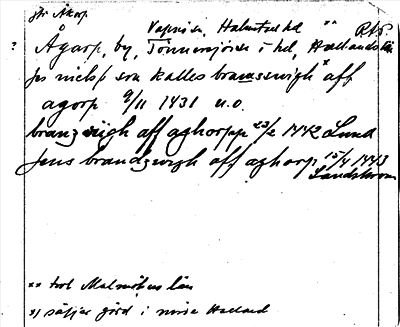 jfr Åkarp
Vapnö sn, Halmstad hd ** RAP.
? Ågarp, by, Tönnersjö sn i hd, Hallands län
Jes nielss som kalles bramsswigh* aff
agorp 9/11 1431 u.o.
branzwigh aff aghorpp 23/2 1442 Lund
Jens brandzwigh aff aghorp 15/4 1443
Landskrona
** trol Malmöhus län
*) säljer gård i norra Halland